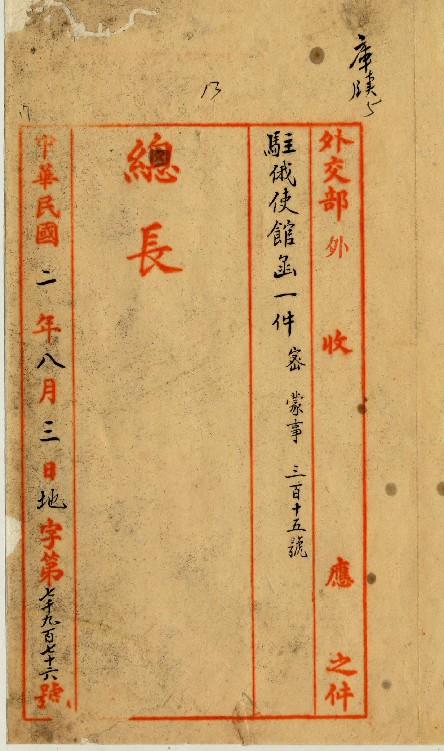 庫
外交部外收應之件
駐俄使館函一件 密 蒙事 三百十五號
總長
中華民國二年八月三日地字第七千九百七十六號